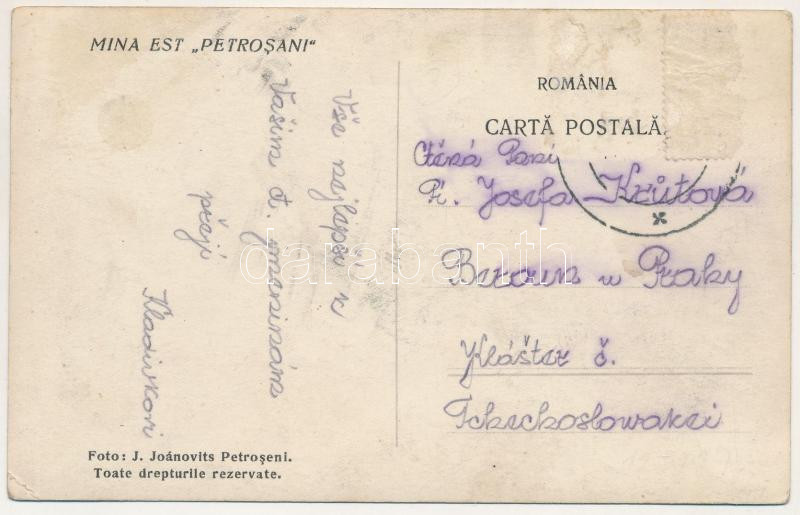 MINA EST „PETROȘANI“
Vše nejlepší k
Vašim d. jmeninám
přejí
Kladivkovi
Foto: J. Joánovits Petroşeni.
Toate drepturile rezervate.
ROMÂNIA
CARTĂ POSTALĂ
Ctěná Paní
Pí. Josefa Krůtová
Beroun u Prahy
Klášter č.
Tchechoslowakei
darabanth